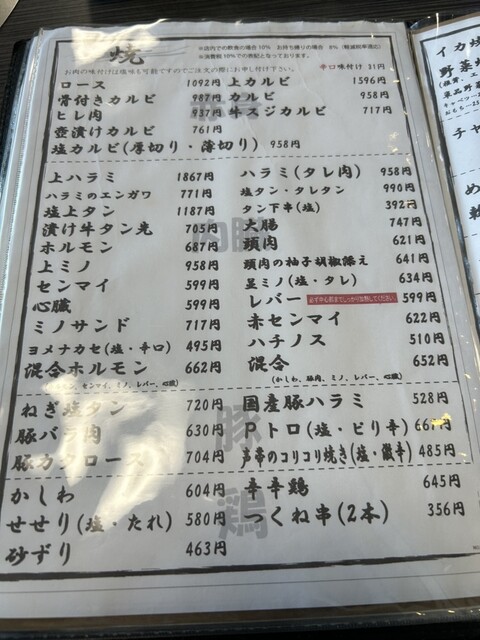 焼
※店内での飲食の場合10% お持ち帰りの場合 8%(軽減税率適応)
※消費税10%での表記となっております。
お肉の味付けは塩味も可能ですのでご注文の際にお申し付け下さい。 辛口味付け 31円
ロース 1092円 上カルビ 1596円
骨付きカルビ 987円 カルビ 958円
ヒレ肉 937円 牛スジカルビ 717円
壺漬けカルビ 761円
塩カルビ(厚切り・薄切り) 958円
上ハラミ 1867円 ハラミ(タレ肉) 958円
ハラミのエンガワ 771円 塩タン・タレタン 990円
塩上タン 1187円 タン下串(塩) 392円
漬け牛タン先 705円 大腸 747円
ホルモン 687円 頭肉 621円
上ミノ 958円 頭肉の柚子胡椒添え 641円
センマイ 599円 並ミノ(塩・タレ) 634円
心臓 599円 レバー 必ず中心部までしっかり加熱してください。 599円
ミノサンド 717円 赤センマイ 622円
ヨメナカセ(塩・辛口) 495円 ハチノス 510円
混合ホルモン 662円 混合 652円
センマイ、ミノ、レバー、心臓) (かしわ、豚肉、ミノ、レバー、心臓)
内臓
ねぎ塩タン 720円 国産豚ハラミ 528円
豚バラ肉 630円 Pトロ(塩・ピリ辛) 667円
豚カタロース 704円 声帯のコリコリ焼き(塩・激辛) 485円
豚
かしわ 604円 辛辛鶏 645円
せせり(塩・たれ) 580円 つくね串(2本) 356円
砂ずり 463円
鶏
イカ焼
野菜
チャ
め